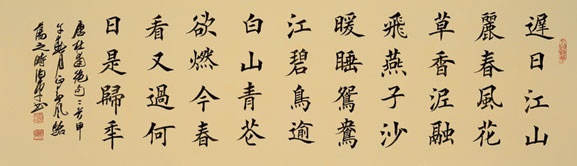 遲日江山
麗春風花
草香泥融
飛燕子沙
暖睡鴛鴦
江碧鳥逾
白山青花
欲燃今春
看又過何
日是歸年
唐杜甫絕句二首甲
午